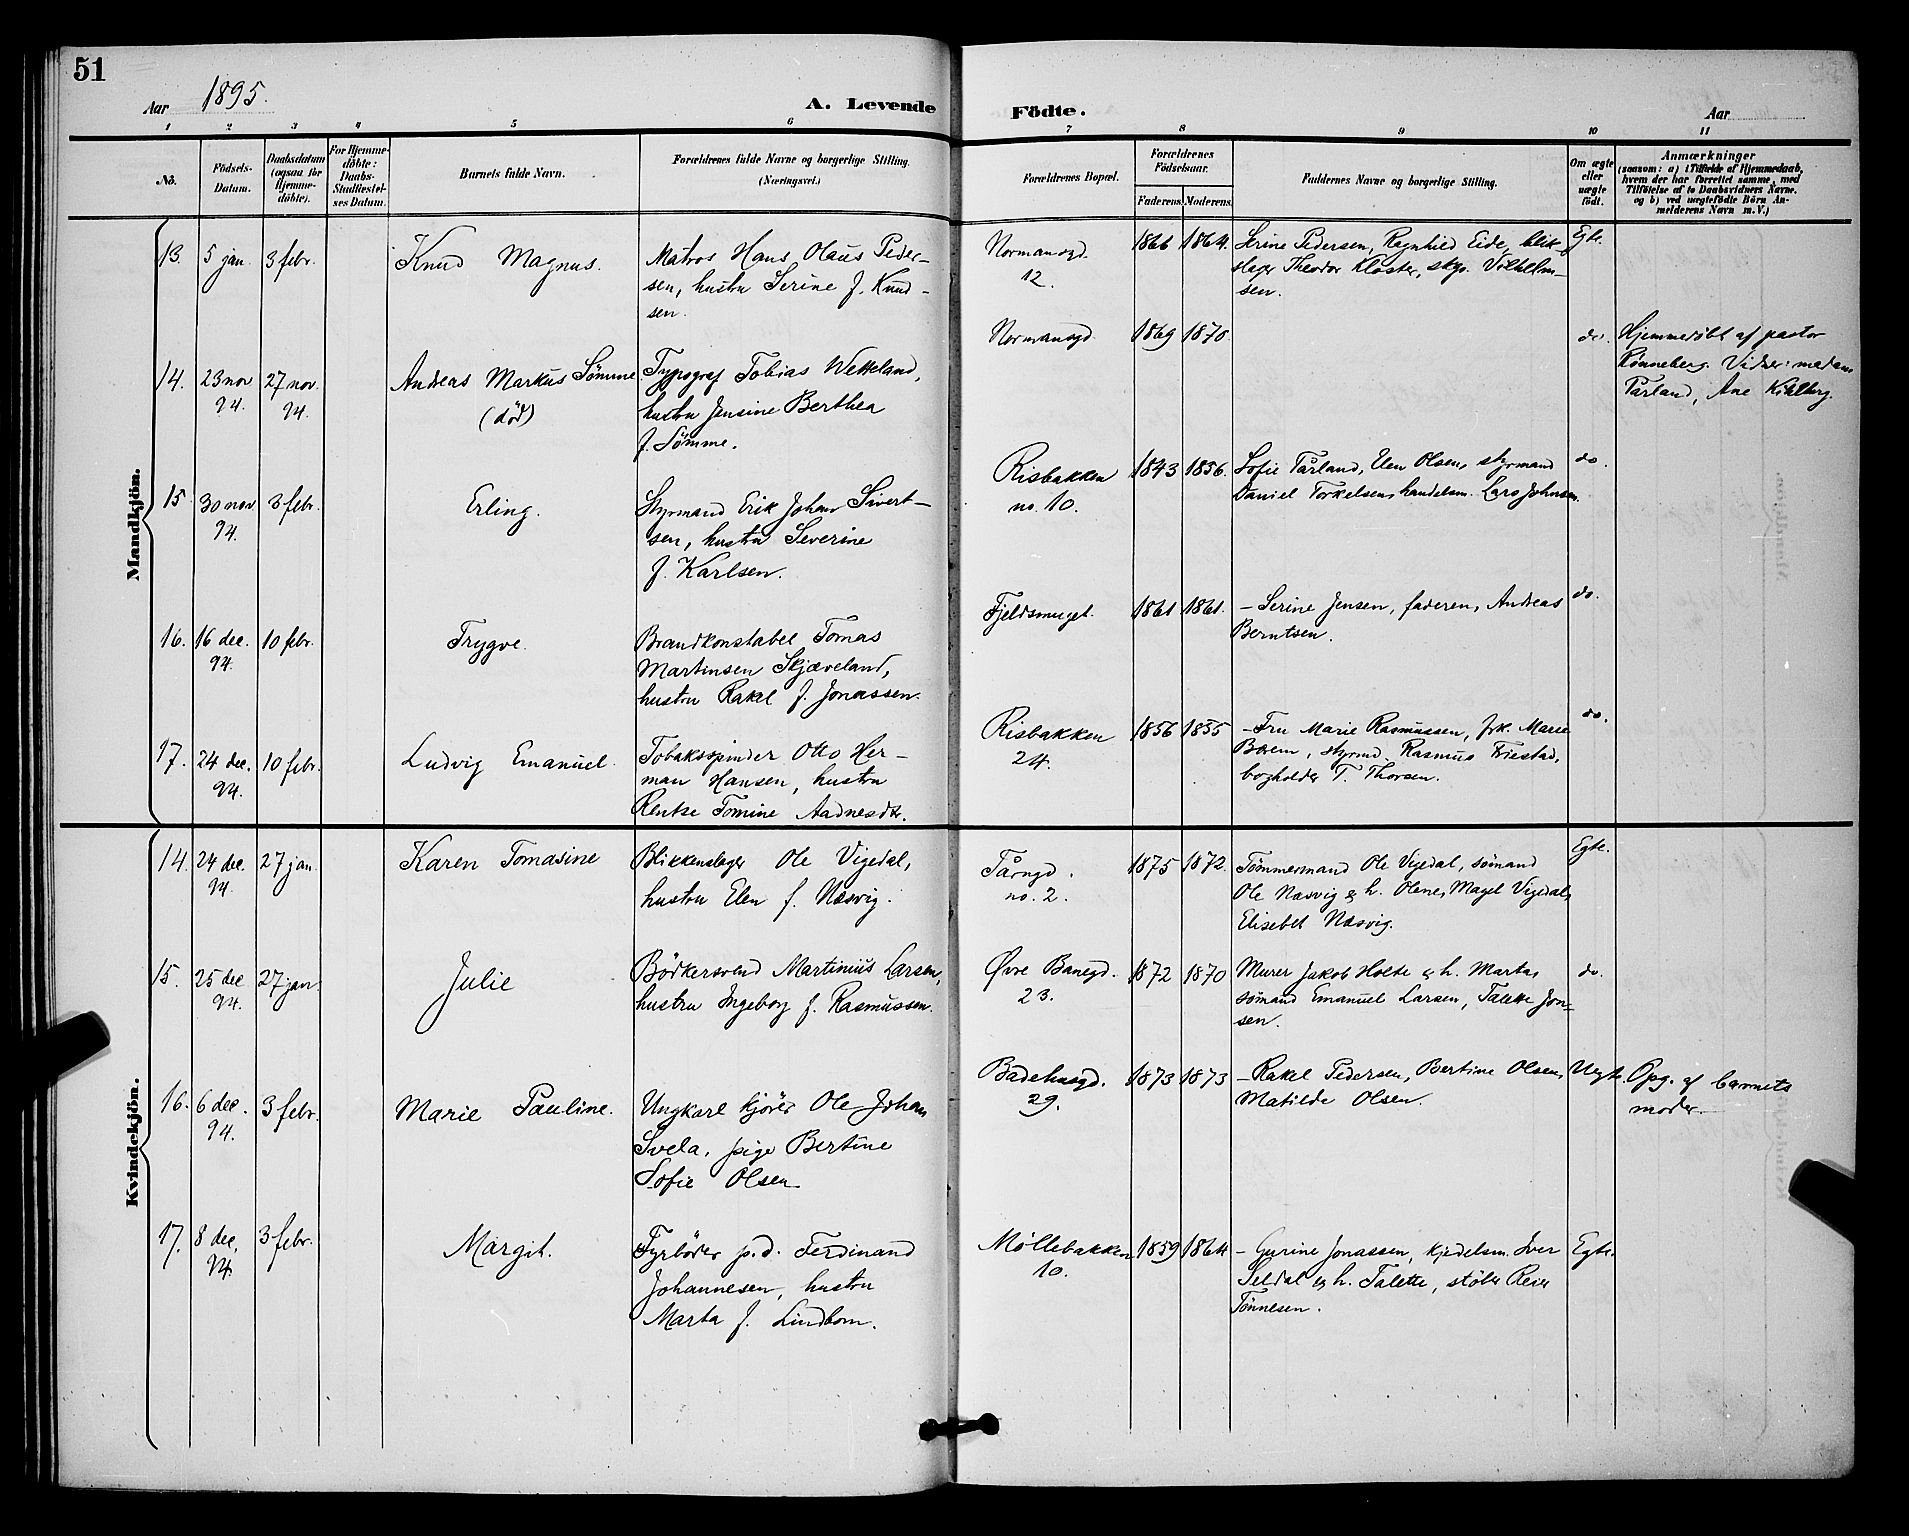 51
Aar 1895.
A. Levende Födte.
Aar
1 2 3 4 5 6 7 8 9 10 11
No.
Födsels-
Datum.
Daabsdatum
(ogsaa for
Hjemme-
døbte).
For Hjemme-
døbte:
Daabs-
Stadfæstel-
ses Datum.
Barnets fulde Navn.
Forældrenes fulde Navne og borgerlige Stilling.
(Næringsvei.)
Forældrenes Bopæl.
Forældrenes
Födselsaar.
Faderens. Moderens.
Faddernes Navne og borgerlige Stilling.
Om ægte
eller
uægte
født.
Anmærkninger
(saasom: a) i Tilfælde af Hjemmedaab,
hvem der har forrettet samme, med
Tilföielse af to Daabsvidners Navne,
og b) ved uægtefödte Börn An-
melderens Navn m. V.)
Mandkjön.
13. 5 jan. 3 febr. Knud Magnus.
Matros Hans Olaus Peder-
sen, hustru Serine f. Knud-
sen.
Normansgd.
12.
1866 1864.
Serine Pedersen, Ragnhild Eide, blik-
slager Theodor Kloster, skp. Vilhelm-
sen.
Egte.
14. 23 nov 94. 27 nov. 94.
Andreas Markus Sömme
(död)
Typograf Tobias Wetteland,
hustru Jensine Berthea
f. Sömme.
Normansgd.
1869 1870.
do.
Hjemmedöbt af pastor
Rönneberg. Vidner: madam
Tårland, Ane Kihlberg.
15. 30 nov 94. 3 febr. Erling.
Styrmand Erik Johan Sivert-
sen, hustru Severine
f. Karlsen.
Risbakken
no. 10.
1843 1856.
Sofie Tårland, Elen Olsen, styrmand
Daniel Torkelsen, handelsm. Lars Johnsen.
do.
16. 16 dec. 94. 10 febr. Trygve.
Brandkonstabel Tomas
Martinsen Skjæveland,
hustru Rakel f. Jonassen.
Fjeldsmuget.
1861 1861.
- Serine Jensen, faderen, Andreas
Berntsen.
do.
17. 24 dec. 94. 10 febr. Ludvig Emanuel.
Tobaksspinder Otto Her-
man Hansen, hustru
Rentse Tomine Aadnesdtr.
Risbakken
24.
1856 1855
- Fru Marie Rasmussen, frk. Marie
Boem, styrmd. Rasmus Friestad,
bogholder T. Thorsen.
do.
Kvindekjön.
14. 24 dec. 94. 27 jan. Karen Tomasine
Blikkenslager Ole Vigedal,
hustru Elen f. Næsvig.
Tårngd.
no. 2.
1875 1872.
Tömmermand Ole Vigedal, sömand
Ole Næsvig & h. Olene, Magel Vigedal,
Elisebet Næsvig.
Egte.
15. 25 dec 94. 27 jan. Julie
Bödkersvend Martinius Larsen,
hustru Ingeborg f. Rasmussen.
Øvre Banegd.
23.
1872 1870
Murer Jakob Holte & h. Marta,
sömand Emanuel Larsen, Talette Jon-
sen.
do.
16. 6 dec. 94. 3 febr. Marie Pauline.
Ungkarl kjörer Ole Johan
Svela, pige Bertine
Sofie Olsen
Badehusgd.
29.
1873 1873
- Rakel Pedersen, Bertine Olsen,
Matilde Olsen.
Uegte.
Opg. af barnets
moder.
17. 8 dec. 94. 3 febr. Margit.
Fyrböder p.d. Ferdinand
Johannesen, hustru
Marta f. Lindbom.
Møllebakken
10.
1859 1864
- Gurine Jonassen, kjedelsm. Iver
Seldal & h. Talette, stöber Reier
Tönnesen.
Egte.